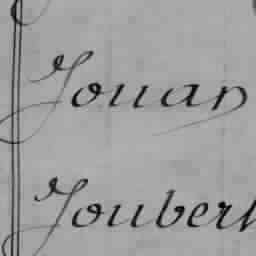 Jouan
Joubert